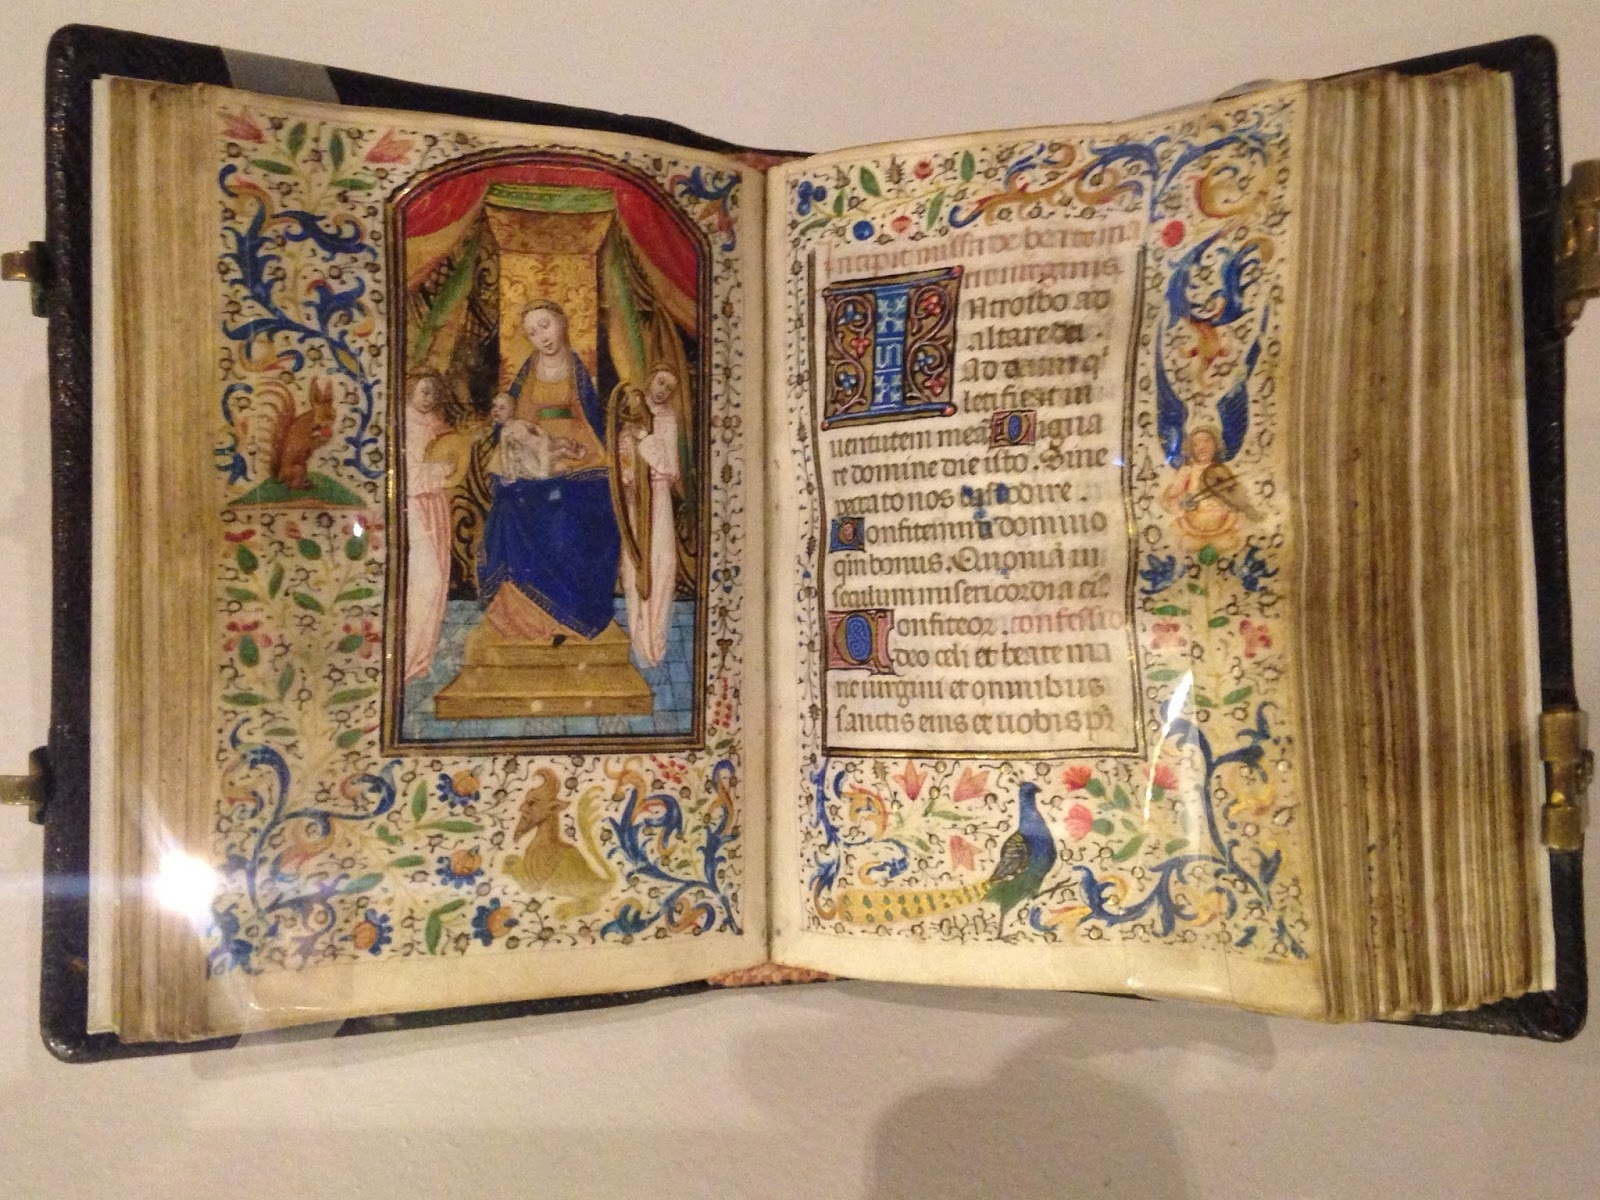 Incipit missa de beata ma
ria virginis.
Introibo ad
altare dei.
Ad deum q
letificat in
uentutem meā Digna
re domine die isto. Sine
peccato nos custodire.
Confitemini domino
qm̄ bonus. Quoniā in
seculum misericordia ei
Confiteor. confessio
deo celi et beate ma
rie uirgini et omnibus
sanctis eius et uobis pr̄